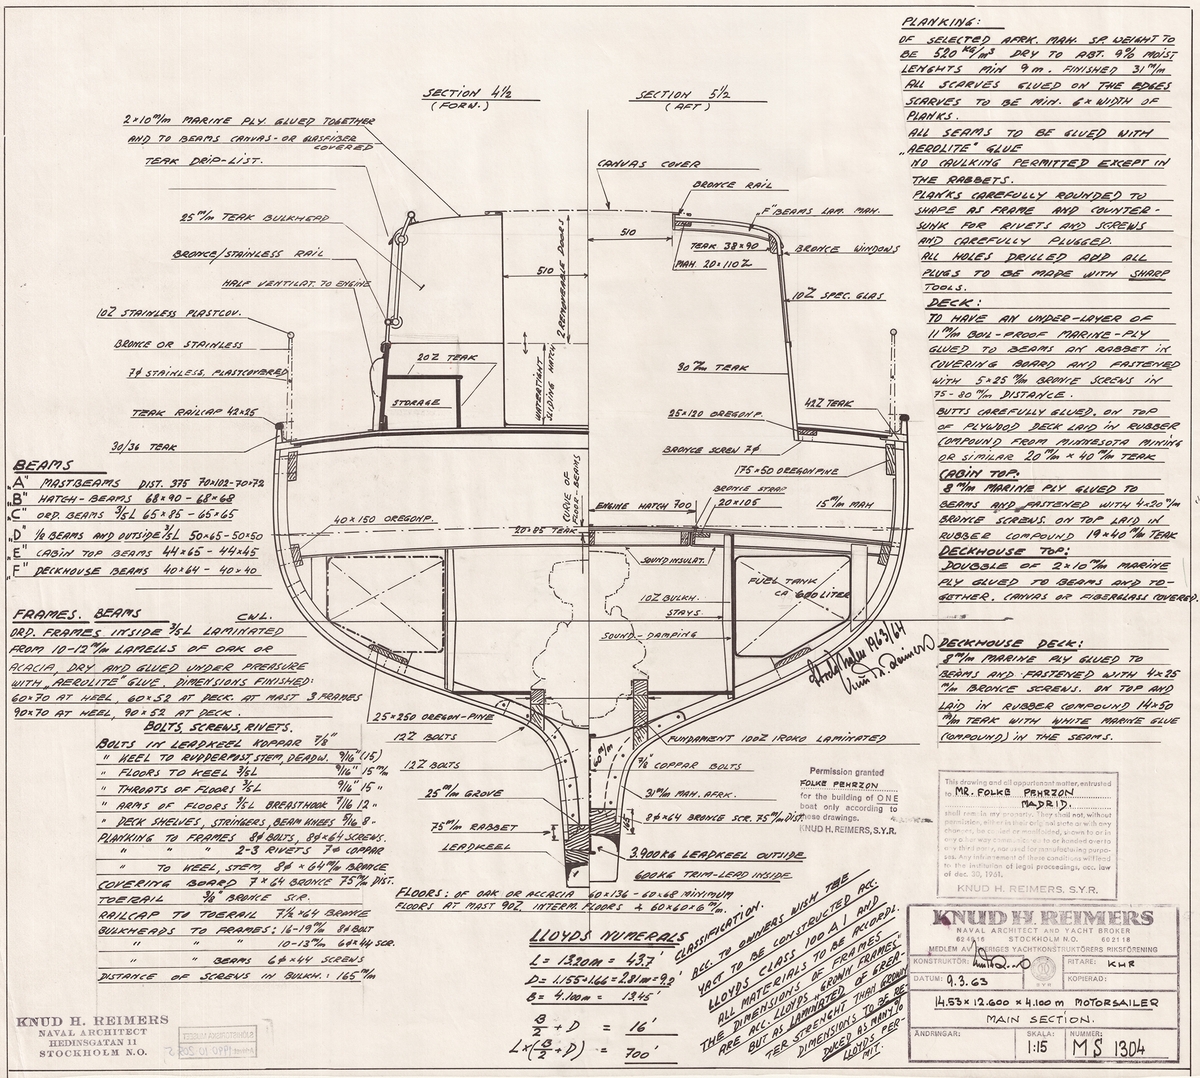 SECTION 4½
(FORW.)
SECTION 5½
(AFT)
2×10 m/m MARINE PLY GLUED TOGETHER
AND TO BEAMS CANVAS- OR GLASFIBER
COVERED
TEAK DRIP-LIST.
25 m/m TEAK BULKHEAD
BRONCE/STAINLESS RAIL
HALF VENTILAT. TO ENGINE
10Z STAINLESS PLASTCOV.
BRONCE OR STAINLESS
7¢ STAINLESS, PLASTCOVERED
TEAK RAILCAP 42×25
30/36 TEAK
20Z TEAK
STORAGE
510
WATERTIGHT
SLIDING HATCH
2 REMOVEABLE DOORS
CANVAS COVER
BRONCE RAIL
"F" BEAMS LAM. MAH.
510
TEAK 38×90
MAH. 20×110Z
BRONCE WINDOWS
10Z SPEC. GLAS
30 m/m TEAK
42Z TEAK
25×120 OREGONP.
BRONCE SCREW 7¢
175×50 OREGONPINE
BRONCE STRAP
20×105
15 m/m MAH
ENGINE HATCH 700
CURVE OF
FLOOR-BEAMS
20×85 TEAK
40×150 OREGONP.
SOUNDINSULAT.
FUEL TANK
CA 600 LITER
10Z BULKH.
STAYS.
SOUND-DAMPING
25×250 OREGON-PINE
12Z BOLTS
12Z BOLTS
25 m/m GROVE
75 m/m RABBET
LEADKEEL
60 m/m
165
FUNDAMENT 100Z IROKO LAMINATED
7/8 COPPAR BOLTS
31 m/m MAH. AFRK.
8¢×64 BRONCE SCR. 75 m/m DIST.
3.900KG LEADKEEL OUTSIDE
600KG TRIM-LEAD INSIDE.
FLOORS: OF OAK OR ACCACIA 60×136 - 60×68 MINIMUM
FLOORS AT MAST 90Z. INTERM. FLOORS 60×60×6 m/m.
BEAMS
"A" MASTBEAMS DIST. 375 70×102-70×72
"B" HATCH-BEAMS 68×90 - 68×68
"C" ORD. BEAMS 3/5L 65×85 - 65×65
"D" ½ BEAMS AND OUTSIDE 3/5L 50×65-50×50
"E" CABIN TOP BEAMS 44×65 - 44×45
"F" DECKHOUSE BEAMS 40×64 - 40×40
FRAMES. BEAMS
CWL.
ORD. FRAMES INSIDE 3/5L LAMINATED
FROM 10-12 m/m LAMELLS OF OAK OR
ACACIA, DRY AND GLUED UNDER PREASURE
WITH "AEROLITE" GLUE, DIMENSIONS FINISHED:
60×70 AT HEEL, 60×52 AT DECK. AT MAST 3 FRAMES
90×70 AT HEEL, 90×52 AT DECK.
BOLTS, SCREWS, RIVETS.
BOLTS IN LEADKEEL KOPPAR 7/8"
" KEEL TO RUDDERPOST, STEM, DEADW. 9/16" (15)
" FLOORS TO KEEL 3/5L 9/16" 15 m/m
" THROATS OF FLOORS 3/5L 9/16" 15 "
" ARMS OF FLOORS 3/5L BREASTHOOK 7/16 12 "
" DECK SHELVES, STRINGERS, BEAM KNEES 5/16 8 -
PLANKING TO FRAMES 8¢ BOLTS, 8¢×64 SCREWS.
" " " 2-3 RIVETS 7¢ COPPAR
" TO KEEL, STEM, 8¢ × 64 m/m BRONCE
COVERING BOARD 7×64 BRONCE 75 m/m DIST.
TOERAIL 3/8" BRONCE SCR.
RAILCAP TO TOERAIL 7½×64 BRONCE
BULKHEADS TO FRAMES: 16-19 m/m 8¢ BOLT
" " " 10-13 m/m 6¢×44 SCR.
" " BEAMS 6¢×44 SCREWS
DISTANCE OF SCREWS IN BULKH.: 165 m/m
KNUD H. REIMERS
NAVAL ARCHITECT
HEDINSGATAN 11
STOCKHOLM N.O.
LLOYDS NUMERALS
L = 13.20 m = 43.7'
D = 1.155+1.66 = 2.81 m = 9.2'
B = 4.100 m = 13.45'
B/2 + D = 16'
L×(B/2 + D) = 700'
CLASSIFICATION.
ACC. TO OWNERS WISH THE
YACT TO BE CONSTRUCTED ACC.
LLOYDS CLASS 100 A 1 AND
ALL MATERIALS TO BE ACCORDL.
THE DIMENSIONS OF FRAMES
ARE ACC. LLOYDS "GROWN FRAMES"
BUT AS LAMINATED OF GREA-
TER STRENGHT THAN GROWN
DIMENSIONS TO BE RE-
DUCED AS MANY TO
LLOYDS PER-
MIT.
PLANKING:
OF SELECTED AFRK. MAH. SP. WEIGHT TO
BE 520 KG/m³ DRY TO ABT. 9% MOIST.
LENGHTS MIN 9 m. FINISHED 31 m/m
ALL SCARVES GLUED ON THE EDGES
SCARVES TO BE MIN. 6×WIDTH OF
PLANKS.
ALL SEAMS TO BE GLUED WITH
"AEROLITE" GLUE
NO CAULKING PERMITTED EXCEPT IN
THE RABBETS.
PLANKS CAREFULLY ROUNDED TO
SHAPE AS FRAME AND COUNTER-
SUNK FOR RIVETS AND SCREWS
AND CAREFULLY PLUGGED.
ALL HOLES DRILLED AND ALL
PLUGS TO BE MADE WITH SHARP
TOOLS.
DECK:
TO HAVE AN UNDER-LAYER OF
11 m/m BOIL-PROOF MARINE-PLY
GLUED TO BEAMS AN RABBET IN
COVERING BOARD AND FASTENED
WITH 5×25 m/m BRONCE SCREWS IN
75-80 m/m DISTANCE.
BUTTS CAREFULLY GLUED. ON TOP
OF PLYWOOD DECK LAID IN RUBBER
COMPOUND FROM MINNESOTA MINING
OR SIMILAR 20 m/m × 40 m/m TEAK
CABIN TOP:
8 m/m MARINE PLY GLUED TO
BEAMS AND FASTENED WITH 4×20 m/m
BRONCE SCREWS. ON TOP LAID IN
RUBBER COMPOUND 19×40 m/m TEAK
DECKHOUSE TOP:
DOUBBLE OF 2×10 m/m MARINE
PLY GLUED TO BEAMS AND TO-
GETHER. CANVAS OR FIBERGLASS COVERED.
DECKHOUSE DECK:
8 m/m MARINE PLY GLUED TO
BEAMS AND FASTENED WITH 4×25
m/m BRONCE SCREWS. ON TOP AND
LAID IN RUBBER COMPOUND 14×50
m/m TEAK WITH WHITE MARINE GLUE
(COMPOUND) IN THE SEAMS.
Stockholm 1963/64
Knud H. Reimers
Permission granted
FOLKE PEHRZON
for the building of ONE
boat only according to
these drawings.
KNUD H. REIMERS, S.Y.R.
This drawing and all appurtenant matter, entrusted
to MR. FOLKE PEHRZON
MADRID.
shall remain my property. They shall not, without
permission, either in their original state or with any
changes, be copied or
any other way communicated to or handed over to
any third
ses. Any infringement of these conditions will lead
to the institution of legal proceedings, acc. law
of dec. 30, 1961.
KNUD H. REIMERS, S.Y.R.
KNUD H. REIMERS
NAVAL ARCHITECT AND YACHT BROKER
624616 STOCKHOLM N.O. 602118
MEDLEM AV SVERIGES YACHTKONSTRUKTÖRERS RIKSFÖRENING
KONSTRUKTÖR:
RITARE: KHR
DATUM: 9.3.63
KOPIERAD:
14.53 × 12.600 × 4.100 m MOTORSAILER
MAIN SECTION.
ÄNDRINGAR:
SKALA: 1:15
NUMMER: MS 1304